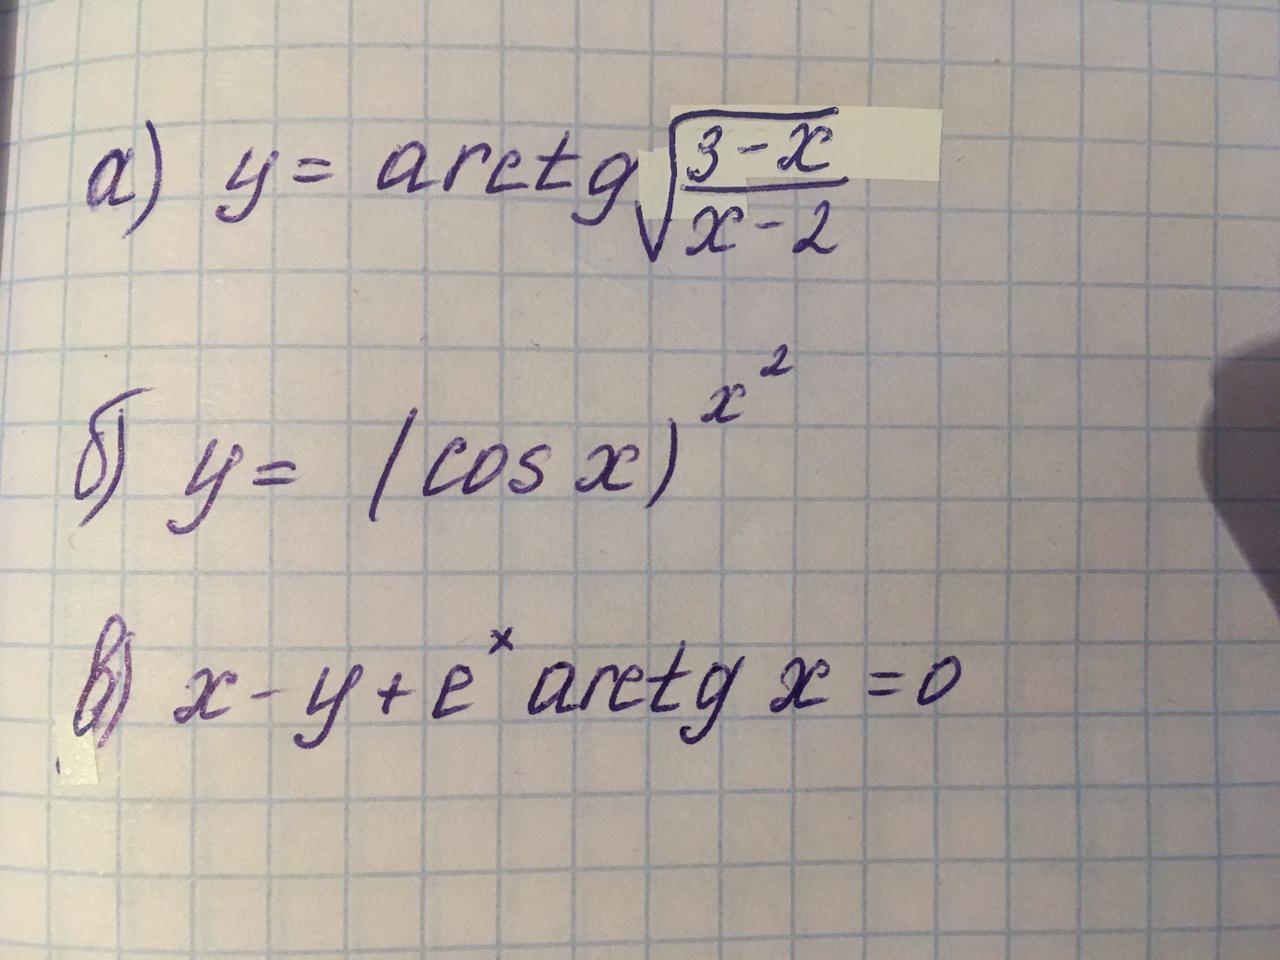 а) y = arctg √((3-x)/(x-2))
б) y = (cos x)^x^2
в) x - y + e^x arctg x = 0